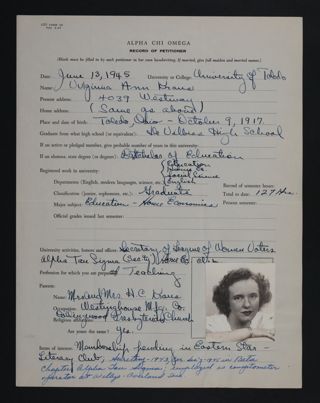 ALPHA CHI OMEGA
RECORD OF PETITIONER
(Blank must be filled in by each petitioner in her own handwriting. If married, give full maiden and married name.)
Date: June 13, 1945 University or College: University of Toledo
Name: Virginia Ann
Present address: 4039 Westway
Home address: (Same as above)
Place and date of birth: Toledo, Ohio - October 9, 1917.
Graduate from what high school (or equivalent): De Vilbiss High School
If an active or pledged member, give probable number of years in this university:
If an alumna, state degree (or degrees): Bachelor of Education
Registered work in university: Education
Home Ec.
Social Science
English
Departments (English, modern languages, science, etc.)
Record of semester hours:
Classification (junior, sophomore, etc.): Graduate Total to date: 127 Hrs.
Major subject: Education - Home Economics Present semester:
Official grades issued last semester:
University activities, honors and offices: Secretary of League of Women Voters
Alpha Tau Sigma (Sec'ty) Home Ec club
Profession for which you are prepared: Teaching
Parents:
Name: Mr and Mrs. H. C.
Occupation: Westinghouse Mfg. Co.
Religious affiliations: Collingwood Presbyterian Church
Are yours the same? yes
Items of interest: Membership pending in Eastern Star -
Literary Club; Secretary - 1943, in Beta
Chapter Alpha Tau Sigma; employed as comptometer
operator at Willys-Overland